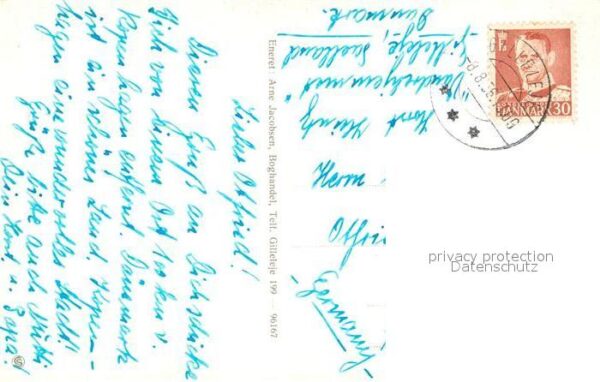 Lieber Otfried!
Diesen Gruß an Dich schicke
ich von einem Ort 100 km v.
Kopenhagen entfernt. Dänemark
ist ein schönes Land. Kopen-
hagen eine wundervolle Stadt!
Grüße bitte auch Mutti
Dein Horst u. Papa!
Eneret: Arne Jacobsen, Boghandel, Telf. Gilleleje 199 — 96167
Herrn
Horst
"Vandrehjemmet"
Gilleleje, Seelland
Danmark.
DANMARK 30
privacy protection
Datenschutz